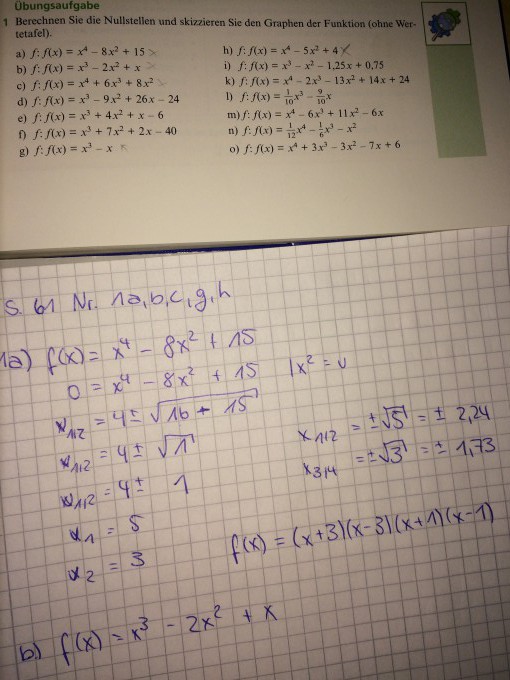 Übungsaufgabe
1 Berechnen Sie die Nullstellen und skizzieren Sie den Graphen der Funktion (ohne Wer-
tetafel).
a) f: f(x) = x⁴ – 8x² + 15
b) f: f(x) = x³ – 2x² + x
c) f: f(x) = x⁴ + 6x³ + 8x²
d) f: f(x) = x³ – 9x² + 26x – 24
e) f: f(x) = x³ + 4x² + x – 6
f) f: f(x) = x³ + 7x² + 2x – 40
g) f: f(x) = x³ – x
h) f: f(x) = x⁴ – 5x² + 4
i) f: f(x) = x³ – x² – 1,25x + 0,75
k) f: f(x) = x⁴ – 2x³ – 13x² + 14x + 24
l) f: f(x) = 1/10 x³ – 9/10 x
m) f: f(x) = x⁴ – 6x³ + 11x² – 6x
n) f: f(x) = 1/12 x⁴ – 1/6 x³ – x²
o) f: f(x) = x⁴ + 3x³ – 3x² – 7x + 6
S. 61 Nr. 1a,b,c,g,h
1a) f(x) = x⁴ – 8x² + 15
0 = x⁴ – 8x² + 15 | x² = u
u₁,₂ = 4 ± √16 – 15
u₁,₂ = 4 ± √1
u₁,₂ = 4 ± 1
u₁ = 5
u₂ = 3
x₁/₂ = ±√5 = ± 2,24
x₃/₄ = ±√3 = ± 1,73
f(x) = (x+3)(x-3)(x+1)(x-1)
b) f(x) = x³ – 2x² + x